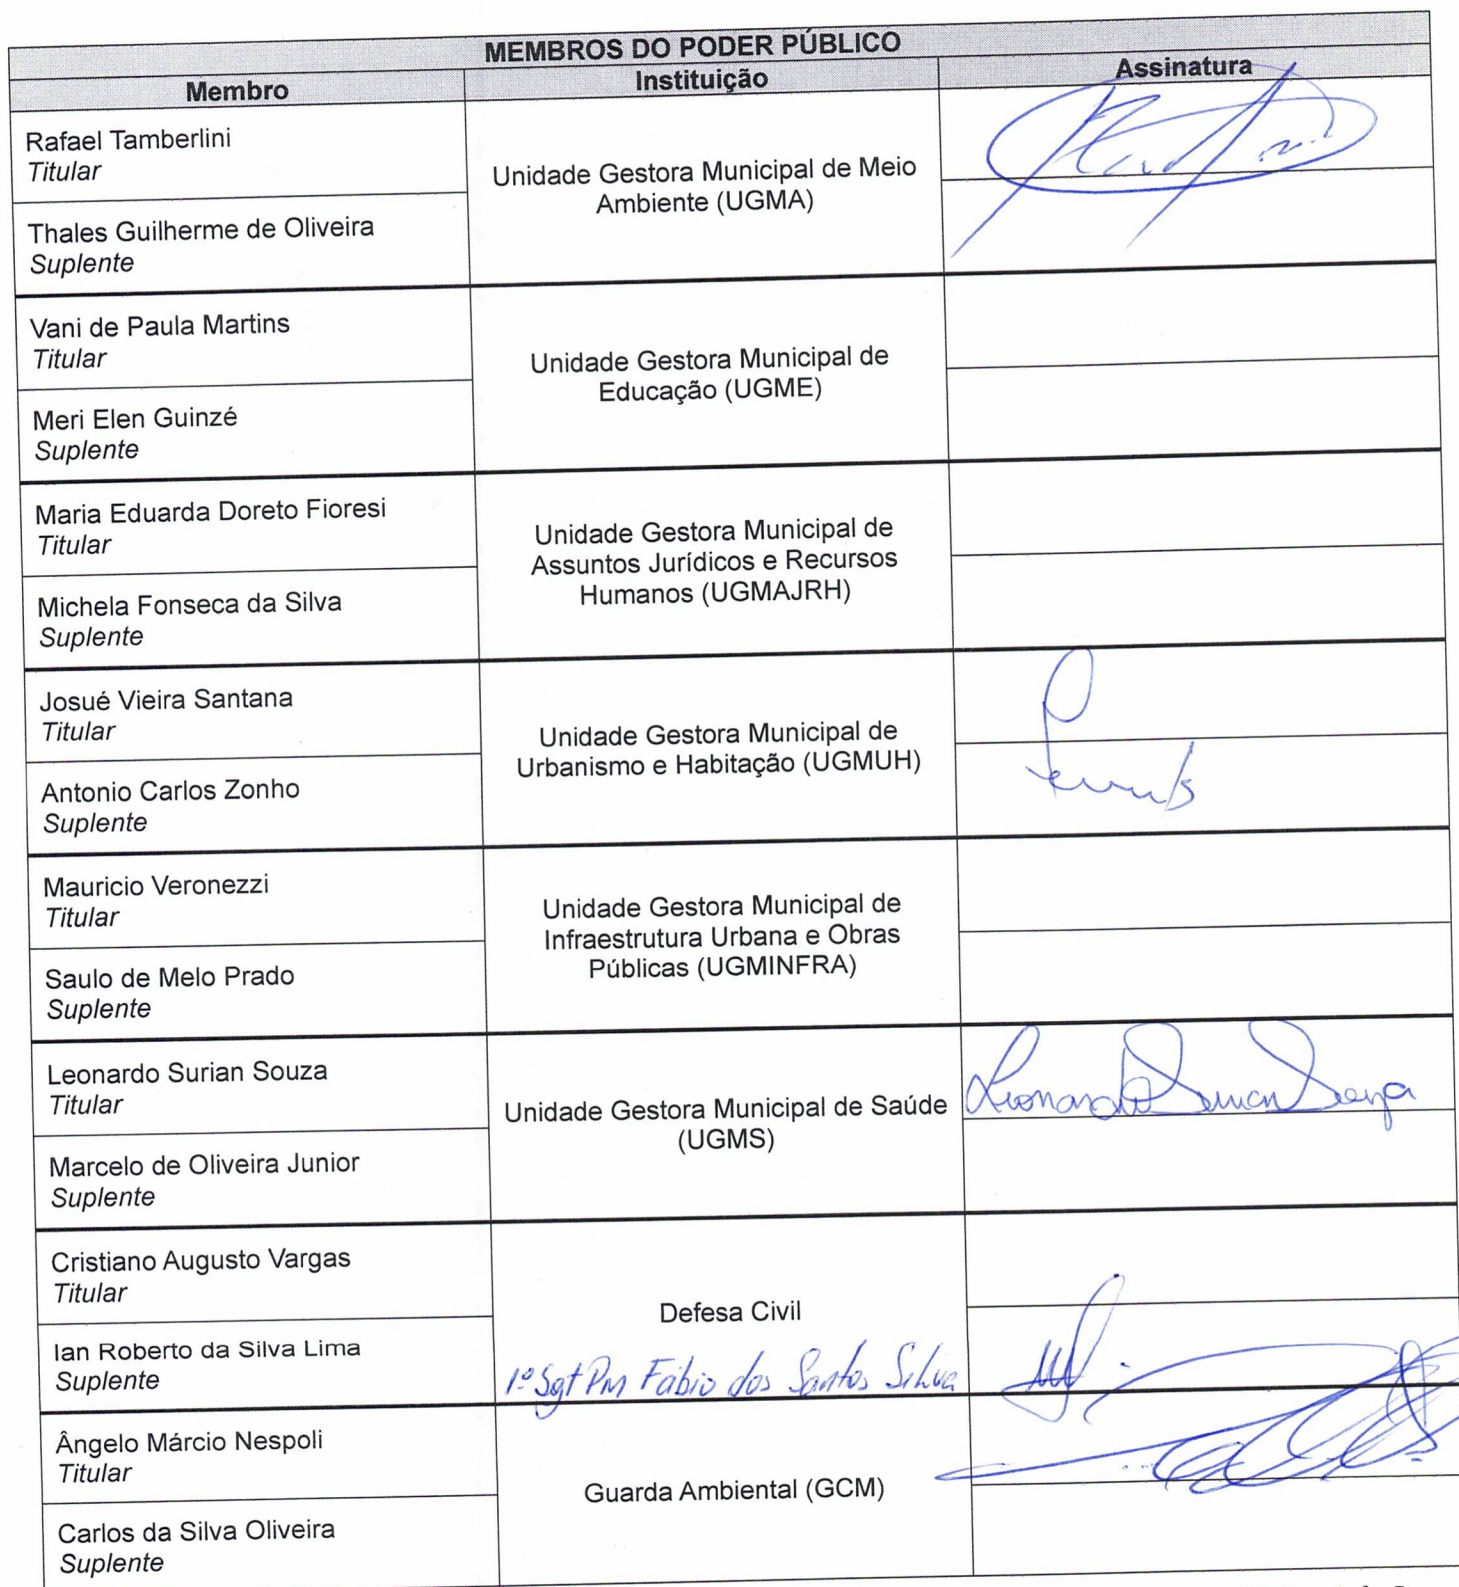 MEMBROS DO PODER PÚBLICO
Membro
Instituição
Assinatura
Rafael Tamberlini
Titular
Unidade Gestora Municipal de Meio
Ambiente (UGMA)
Thales Guilherme de Oliveira
Suplente
Vani de Paula Martins
Titular
Unidade Gestora Municipal de
Educação (UGME)
Meri Elen Guinzé
Suplente
Maria Eduarda Doreto Fioresi
Titular
Unidade Gestora Municipal de
Assuntos Jurídicos e Recursos
Humanos (UGMAJRH)
Michela Fonseca da Silva
Suplente
Josué Vieira Santana
Titular
Unidade Gestora Municipal de
Urbanismo e Habitação (UGMUH)
Antonio Carlos Zonho
Suplente
Mauricio Veronezzi
Titular
Unidade Gestora Municipal de
Infraestrutura Urbana e Obras
Públicas (UGMINFRA)
Saulo de Melo Prado
Suplente
Leonardo Surian Souza
Titular
Unidade Gestora Municipal de Saúde
(UGMS)
Leonardo Surian Souza
Marcelo de Oliveira Junior
Suplente
Cristiano Augusto Vargas
Titular
Defesa Civil
Ian Roberto da Silva Lima
Suplente
1º Sgt PM Fábio dos Santos Silva
Ângelo Márcio Nespoli
Titular
Guarda Ambiental (GCM)
Carlos da Silva Oliveira
Suplente